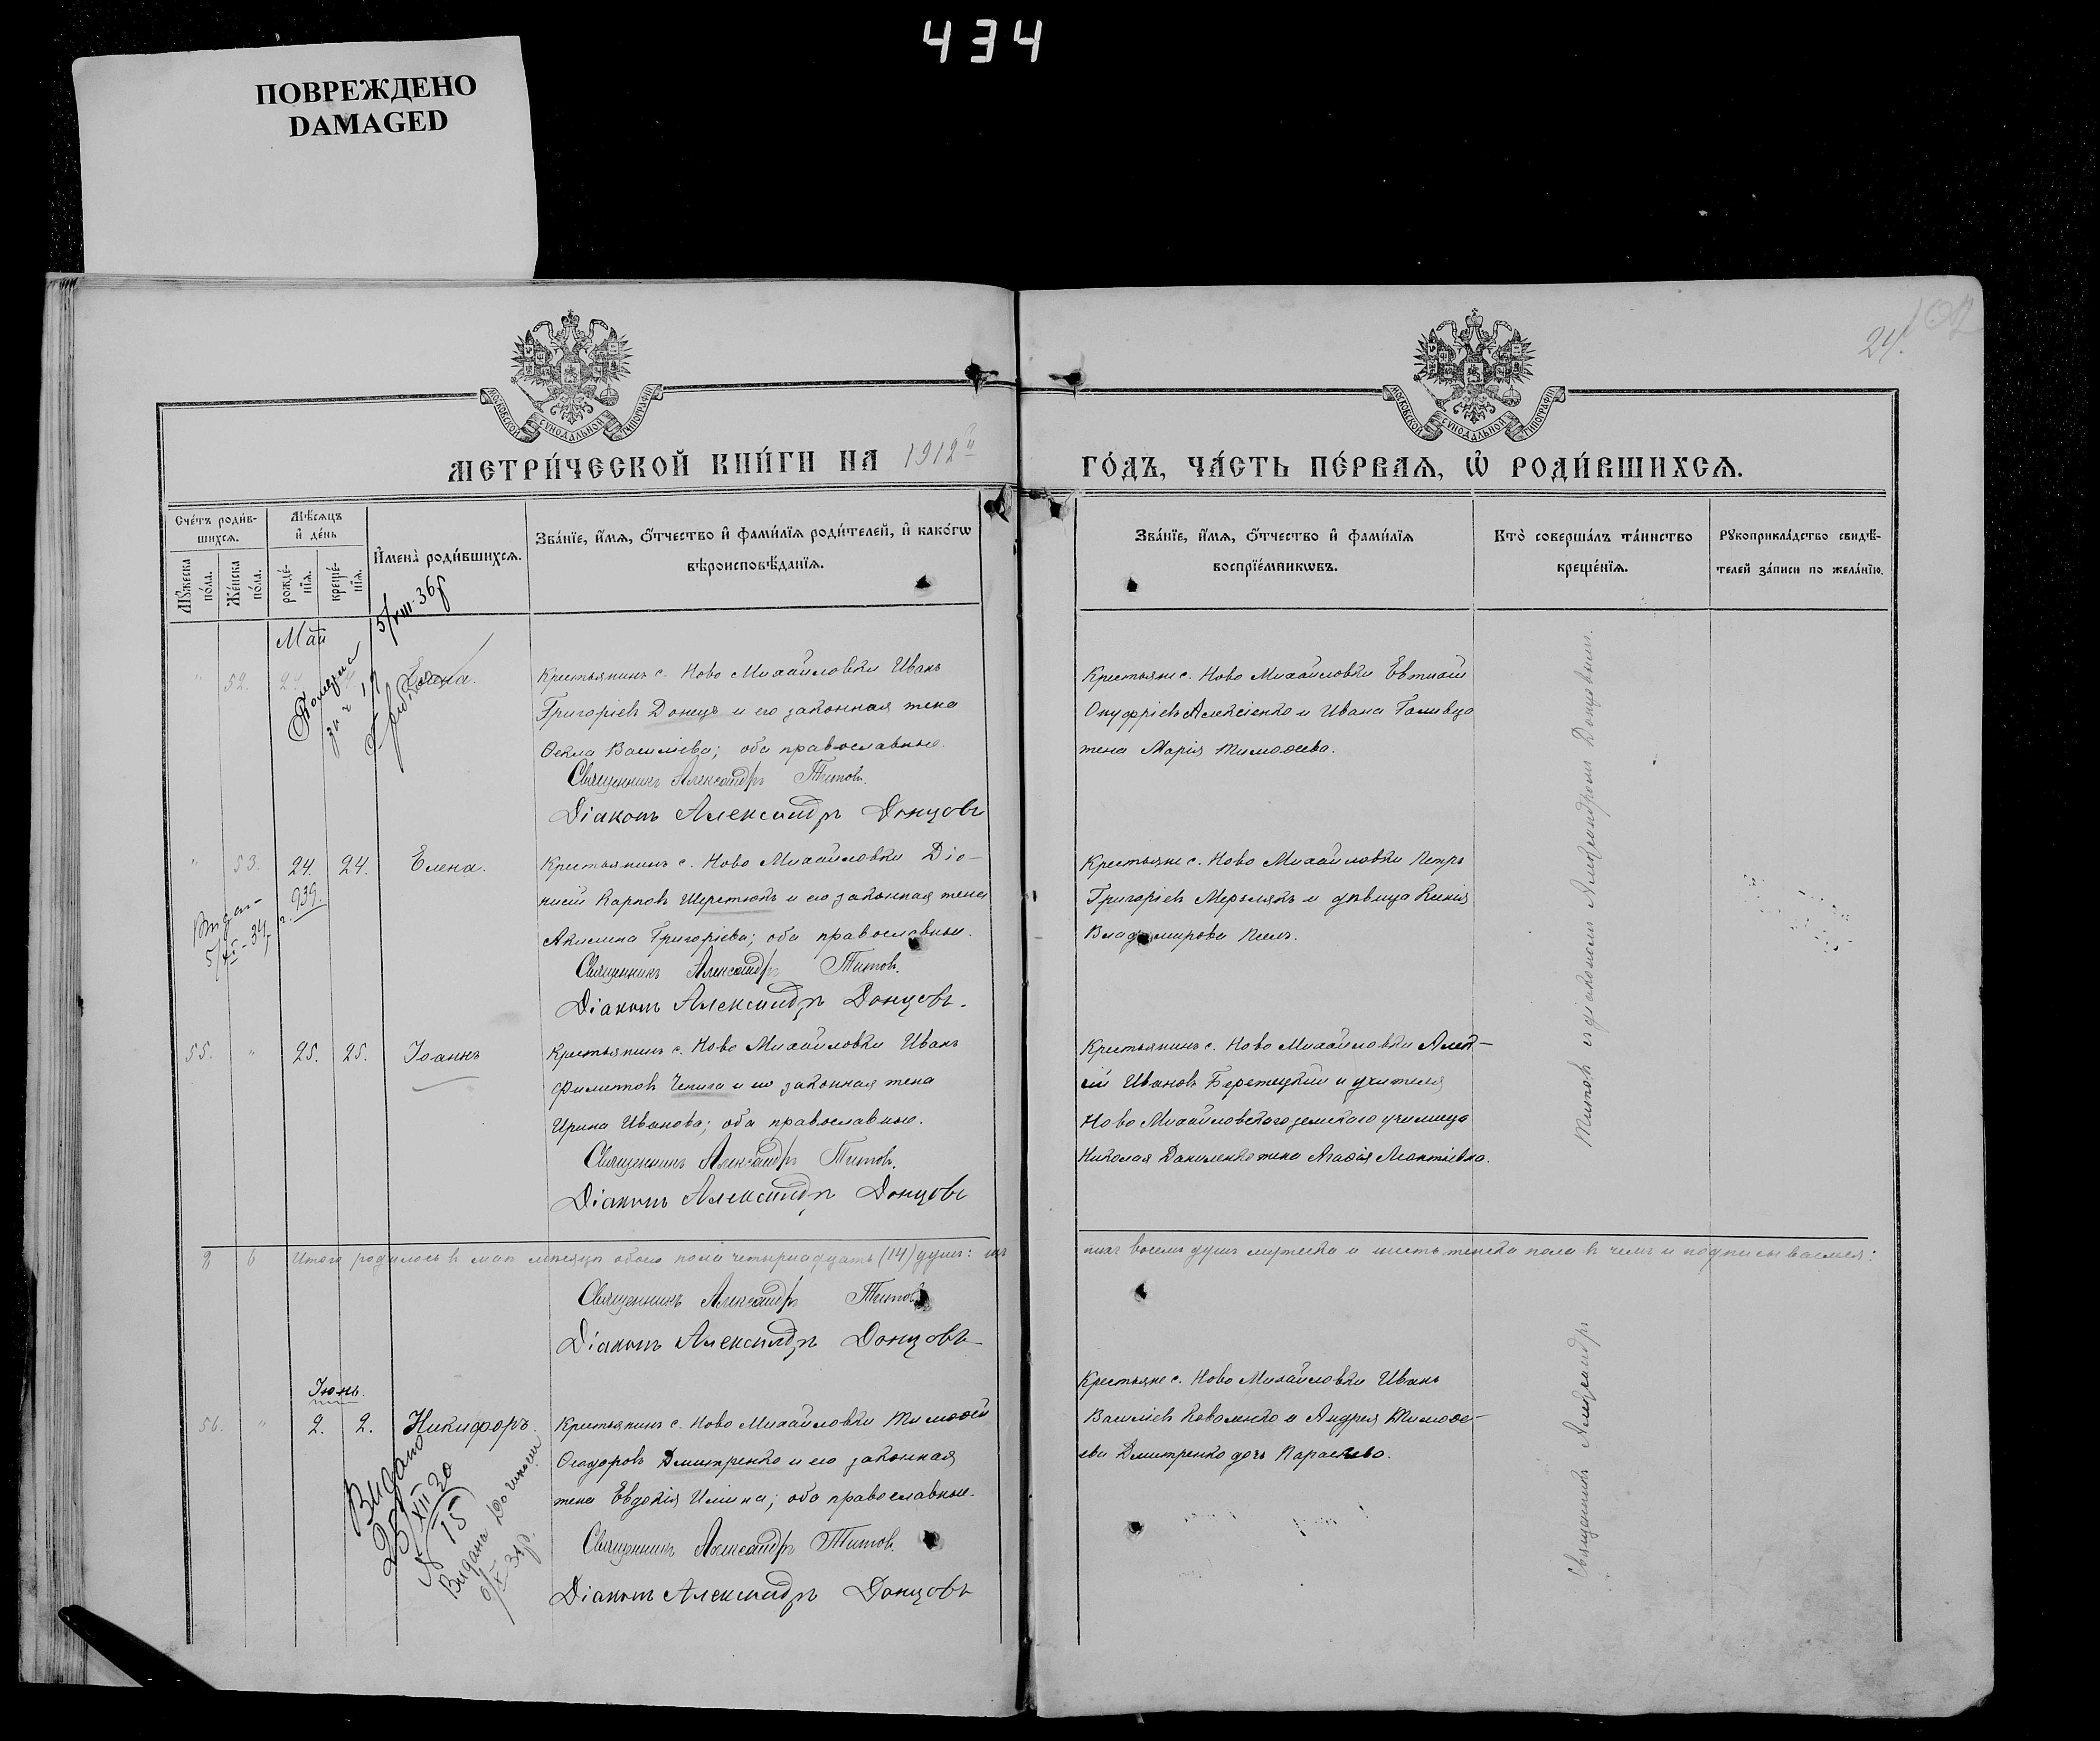 434
ПОВРЕЖДЕНО
DAMAGED
24.
102
МОСКОВСКОЙ СѴНОДАЛЬНОЙ ТИПОГРАФІИ
МОСКОВСКОЙ СѴНОДАЛЬНОЙ ТИПОГРАФІИ
МЕТРИ́ЧЕСКОЙ КНИ́ГИ НА 1912й ГО́ДЪ, ЧА́СТЬ ПЕ́РВАЯ, Ѡ҆ РОДИ́ВШИХСЯ.
Сче́тъ роди́в-
шихся.
Мѣ́сяцъ
и҆ де́нь
Мꙋ́жеска
по́ла.
Же́нска
по́ла.
рожде́-
нїя.
креще́-
нїя.
И҆мена̀ роди́вшихся.
Зва́нїе, и҆́мя, о҆́тчество и҆ фами́лїя роди́телей, и҆ како́гѡ
вѣроисповѣ́данїя.
Зва́нїе, и҆́мя, о҆́тчество и҆ фами́лїя
воспрїе́мникѡвъ.
Кто̀ соверша́лъ та́инство
креще́нїя.
Рꙋкоприкла́дство свидѣ́-
телей за́писи по жела́нїю.
5/VIII-36р
Май
" 52.
Крестьянинъ с. Ново Михайловки Иванъ
Григоріевъ Донецъ и его законная жена
Ѳекла Васильева; оба православные.
Священникъ Александръ Титовъ.
Діаконъ Александръ Донцовъ
Крестьяне с. Ново Михайловки Евтихій
Онуфріевъ Алексіенко и Ивана Галивца
жена Марія Тимоѳеева.
" 53. 24. 24. Елена.
939.
5/XI-34
Крестьянинъ с. Ново Михайловки Діо-
нисій Карповъ Шереметюкъ и его законная жена
Акилина Григоріева; оба православные.
Священникъ Александръ Титовъ.
Діаконъ Александръ Донцовъ.
Крестьяне с. Ново Михайловки Петръ
Григоріевъ Мерзлякъ и дѣвица Ксенія
Владимирова
55. " 25. 25. Іоаннъ
Крестьянинъ с. Ново Михайловки Иванъ
Филиповъ Чепига и его законная жена
Ирина Иванова; оба православные.
Священникъ Александръ Титовъ.
Діаконъ Александръ Донцовъ
Крестьянинъ с. Ново Михайловки Алек-
сѣй Ивановъ Бережецкій и учителя
Ново Михайловскаго земскаго училища
Николая Даниленко жена Агаѳія Леонтіевна.
8 6 Итого родилось въ маѣ мѣсяцѣ обоего пола четырнадцать (14) душъ: изъ нихъ восемь душъ мужеска и шесть женска пола въ чемъ и подписываемся:
Священникъ Александръ Титовъ
Діаконъ Александръ Донцовъ
Іюнь.
56. " 2. 2. Никифоръ.
Видано
25/XII 20
N 15
Видана
9/X 34р.
Крестьянинъ с. Ново Михайловки Тимоѳей
Ѳеодоровъ Дмитренко и его законная
жена Евдокія Ильина; оба православные.
Священникъ Александръ Титовъ.
Діаконъ Александръ Донцовъ
Крестьяне с. Ново Михайловки Иванъ
Васильевъ Коваленко и Андрея Тимоѳе-
ева Дмитренко дочь Параскева.
Священникъ Александръ Титовъ съ діакономъ Александромъ Донцовымъ.